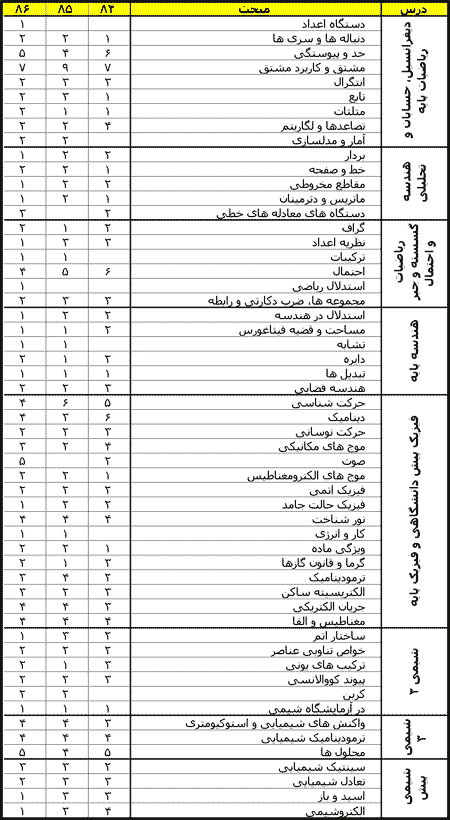 درس مبحث ۸۴ ۸۵ ۸۶
دیفرانسیل، حسابان و ریاضیات پایه
دستگاه اعداد ۱
دنباله ها و سری ها ۱ ۲ ۲
حد و پیوستگی ۶ ۴ ۵
مشتق و کاربرد مشتق ۷ ۹ ۷
انتگرال ۳ ۳ ۲
تابع ۱ ۳ ۲
مثلثات ۱ ۱ ۲
تصاعدها و لگاریتم ۴ ۲ ۲
آمار و مدلسازی ۲ ۲
هندسه تحلیلی
بردار ۲ ۲ ۱
خط و صفحه ۱ ۲ ۲
مقاطع مخروطی ۱ ۲ ۱
ماتریس و دترمینان ۱ ۲ ۱
دستگاه های معادله های خطی ۲ ۳
ریاضیات گسسته و جبر و احتمال
گراف ۲ ۱ ۲
نظریه اعداد ۳ ۳ ۱
ترکیبات ۱ ۱
احتمال ۶ ۵ ۴
استدلال ریاضی ۱
مجموعه ها، ضرب دکارتی و رابطه ۳ ۳ ۲
هندسه پایه
استدلال در هندسه ۲ ۲ ۱
مساحت و قضیه فیثاغورس ۱ ۱ ۲
تشابه ۱ ۱
دایره ۲ ۱ ۲
تبدیل ها ۱ ۱ ۱
هندسه فضایی ۳ ۲ ۲
فیزیک پیش دانشگاهی و فیزیک پایه
حرکت شناسی ۵ ۶ ۴
دینامیک ۶ ۳ ۴
حرکت نوسانی ۳ ۲ ۲
موج های مکانیکی ۴ ۲ ۳
صوت ۲ ۵
موج های الکترومغناطیس ۱ ۲ ۲
فیزیک اتمی ۲ ۲ ۲
فیزیک حالت جامد ۲ ۲ ۱
نور شناخت ۴ ۴ ۴
کار و انرژی ۱ ۱
ویژگی ماده ۱ ۲ ۲
گرما و قانون گازها ۳ ۱ ۲
ترمودینامیک ۲ ۴ ۳
الکتریسیته ساکن ۳ ۲ ۳
جریان الکتریکی ۳ ۴ ۴
مغناطیس و القا ۴ ۴ ۴
شیمی ۲
ساختار اتم ۲ ۳ ۱
خواص تناوبی عناصر ۲ ۲ ۲
ترکیب های یونی ۳ ۱ ۲
پیوند کووالانسی ۳ ۲ ۲
کربن ۲ ۲
در آزمایشگاه شیمی ۱ ۱ ۱
شیمی ۳
واکنش های شیمیایی و استوکیومتری ۳ ۴ ۴
ترمودینامیک شیمیایی ۴ ۴ ۴
محلول ها ۵ ۴ ۵
شیمی پیش
سینتیک شیمیایی ۲ ۳ ۳
تعادل شیمیایی ۳ ۳ ۲
اسید و باز ۳ ۳ ۱
الکتروشیمی ۴ ۳ ۱